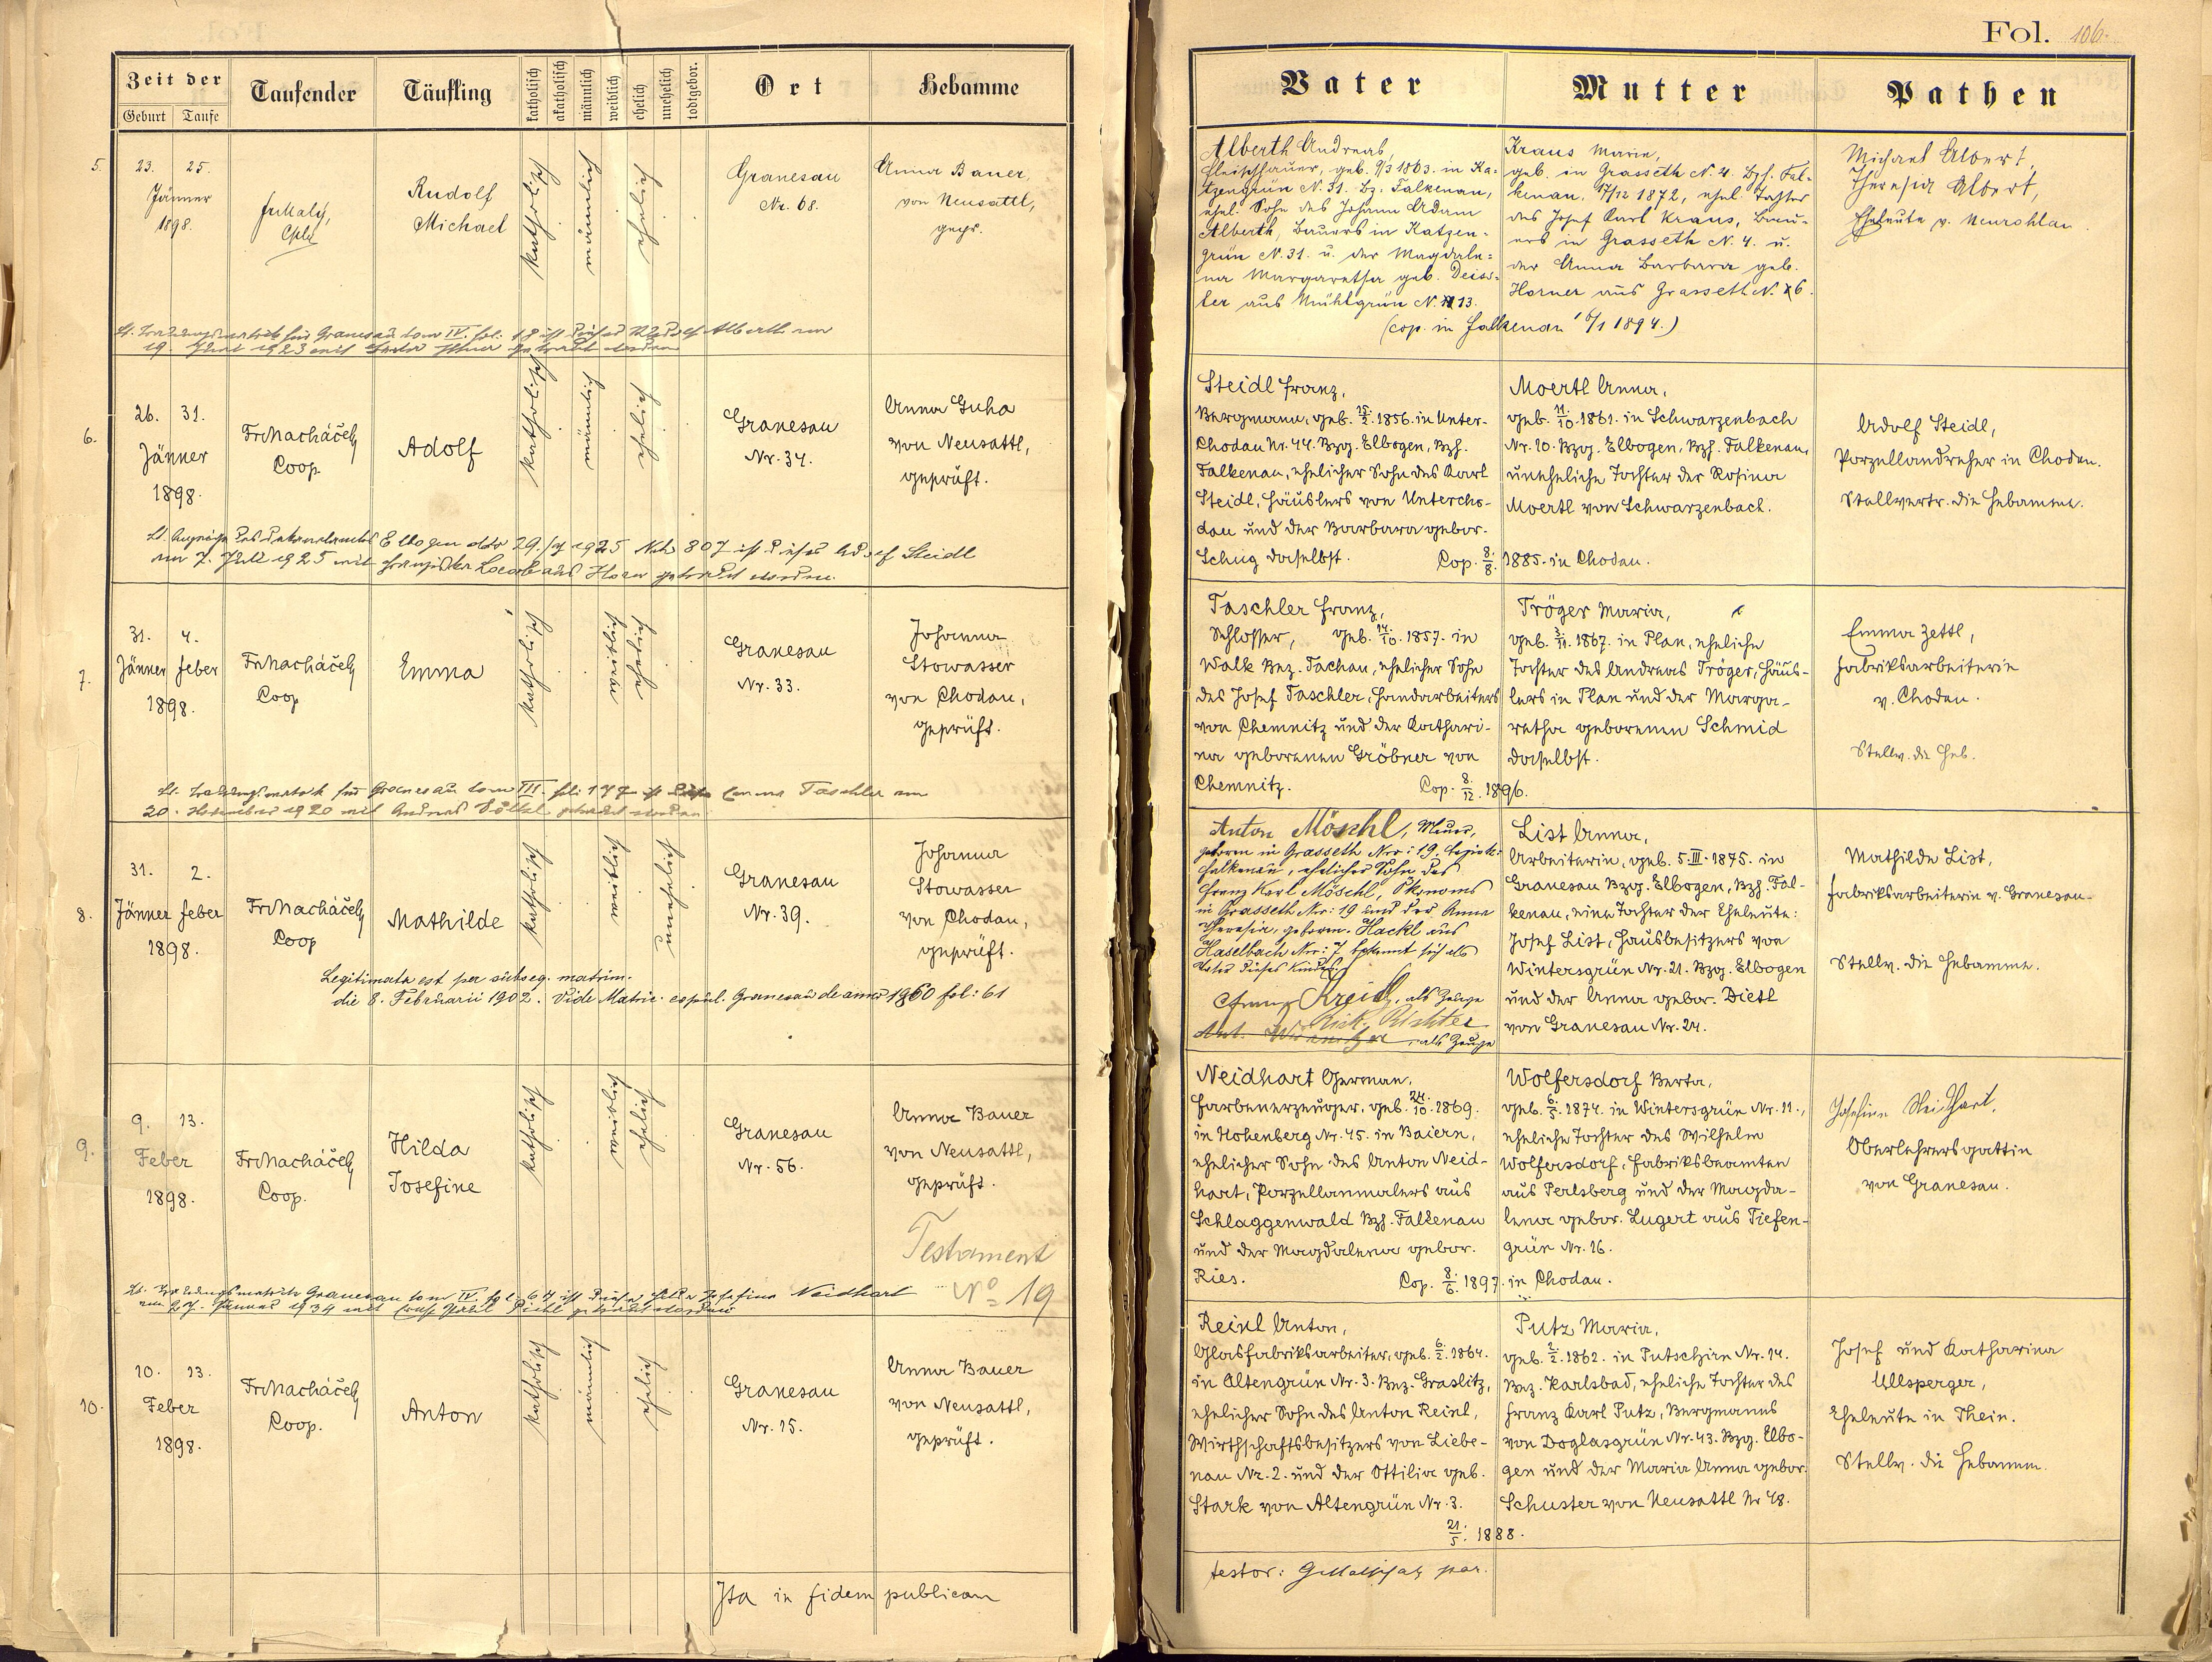 Fol. 106.
Zeit der
Geburt Taufe
Taufender
Täufling
katholisch
akatholisch
männlich
weiblich
ehelich
unehelich
todtgebor.
Ort
Hebamme
Vater
Mutter
Pathen
5.
23. 25.
Jänner
1898.
Rudolf
Michael
katholisch
männlich
ehelich
Granesau
Nr. 68.
Anna Bauer,
von Neusattl,
gepr.
Alberth Andreas,
Fleischhauer, geb. 9/3 1863. in Ka-
tzengrün N. 31. Bz. Falkenau,
ehel. Sohn des Johann Adam
Alberth, Bauers in Katzen-
grün N. 31. u. der Magdale-
na Margaretha geb. Deiss-
ler aus Mühlgrün N. 13.
Kraus Marie,
geb. in Grasseth N. 4. Bzh. Fal-
kenau, 17/12 1872, ehel. Tochter
des Josef Karl Kraus, Bau-
ers in Grasseth N. 4. u.
der Anna Barbara geb.
Horner aus Grasseth N. 6.
(cop. in Falkenau 16/1 1894.)
Michael Albert,
Theresia Albert,
Eheleute v. Neurohlau.
Lt. Trauungsmatrik für Granesau tom IV. fol. 18 ist dieser Rudolf Alberth am
19. Juni 1923 mit getraut worden
6.
26. 31.
Jänner
1898.
Fr. Macháček,
Coop.
Adolf
katholisch
männlich
ehelich
Granesau
Nr. 34.
Anna Guha
von Neusattl,
geprüft.
Steidl Franz,
Bergmann, geb. 25./2. 1856. in Unter-
Chodau Nr. 44. Bzg. Elbogen, Bzh.
Falkenau, ehelicher Sohn des Karl
Steidl, Häuslers von Untercho-
dau und der Barbara gebor.
Schug daselbst.
Moertl Anna,
geb. 11./10. 1861. in Schwarzenbach
Nr. 10. Bzg. Elbogen, Bzh. Falkenau,
uneheliche Tochter der Rosina
Moertl von Schwarzenbach.
Cop. 8./8. 1885. in Chodau.
Adolf Steidl,
Porzellandreher in Chodau.
Stellvertr. die Hebamme.
Elbogen ddo 29./7 1925 No 807 ist dieser Adolf Steidl
am 7. Juli 1925 mit Franziska aus Horn getraut worden.
7.
31. 4.
Jänner Feber
1898.
Fr. Macháček,
Coop
Emma
katholisch
weiblich
ehelich
Granesau
Nr. 33.
Johanna
Stowasser
von Chodau,
geprüft.
Taschler Franz,
Schlosser, geb. 14./10. 1857. in
Walk Bez. Tachau, ehelicher Sohn
des Josef Taschler, Handarbeiters
von Chemnitz und der Kathari-
na geborenen Gröbner von
Chemnitz.
Tröger Maria,
geb. 3./11. 1867. in Plan, eheliche
Tochter des Andreas Tröger, Häus-
lers in Plan und der Marga-
retha geborenen Schmid
daselbst.
Cop. 8./12. 1896.
Emma Zettl,
Fabriksarbeiterin
v. Chodau.
Stellv. die Heb.
Lt. Trauungsmatrik für Granesau tom III. fol. 177 ist diese Emma Taschler am
20. November 1920 mit Andreas getraut worden
8.
31. 2.
Jänner Feber
1898.
Fr. Macháček,
Coop
Mathilde
katholisch
weiblich
unehelich
Granesau
Nr. 39.
Johanna
Stowasser
von Chodau,
geprüft.
Legitimata est per subseq. matrim.
die 8. Februarii 1902. Vide Matric. copul. Granesau de anno 1860 fol: 61
Anton Möschl,
geboren in Grasseth Nro: 19. Bezirk:
Falkenau, ehelicher Sohn des
Franz Karl Möschl, Ökonoms
in Grasseth Nro: 19 und der Anna
Theresia, geboren. Hackl aus
Haselbach Nro: 7 bekennt sich als
Vater dieses Kindes.
Franz Kreidl, als Zeuge
Richter
als Zeuge
List Anna,
Arbeiterin, geb. 5. III. 1875. in
Granesau Bzg. Elbogen, Bzh. Fal-
kenau, eine Tochter der Eheleute:
Josef List, Hausbesitzers von
Wintersgrün Nr. 21. Bzg. Elbogen
und der Anna gebor. Dietl
von Granesau Nr. 24.
Mathilde List,
Fabriksarbeiterin v. Granesau.
Stellv. die Hebamme.
9.
9. 13.
Feber
1898.
Fr. Macháček,
Coop.
Hilda
Josefine
katholisch
weiblich
ehelich
Granesau
Nr. 56.
Anna Bauer
von Neusattl,
geprüft.
Testament
No 19
Neidhart German,
Farbenerzeuger, geb. 24./10. 1869.
in Hohenberg Nr. 45. in Baiern,
ehelicher Sohn des Anton Neid-
hart, Porzellanmalers aus
Schlaggenwald Bzh. Falkenau
und der Magdalena gebor.
Ries.
Wolfersdorf Berta,
geb. 6./5. 1874. in Wintersgrün Nr. 11.,
eheliche Tochter des Wilhelm
Wolfersdorf, Fabriksbeamten
aus Perlsberg und der Magda-
lena gebor. Lugert aus Tiefen-
grün Nr. 16.
Cop. 8./6. 1897. in Chodau.
Josefine Neidhart,
Oberlehrersgattin
von Granesau.
Lt. Trauungsmatrik Granesau tom IV. fol. 64 ist diese Hilda Josefine Neidhart
am 27. 1934 mit getraut worden
10.
10. 13.
Feber
1898.
Fr. Macháček,
Coop.
Anton
katholisch
männlich
ehelich
Granesau
Nr. 15.
Anna Bauer
von Neusattl,
geprüft.
Reinl Anton,
Glasfabriksarbeiter, geb. 6./2. 1864.
in Altengrün Nr. 3. Bez. Graslitz,
ehelicher Sohn des Anton Reinl,
Wirthschaftsbesitzers von Liebe-
nau Nr. 2. und der Ottilia geb.
Stark von Altengrün Nr. 3.
Putz Maria,
geb. 2./2. 1862. in Putschirn Nr. 14.
Bez. Karlsbad, eheliche Tochter des
Franz Karl Putz, Bergmanns
von Doglasgrün Nr. 43. Bzg. Elbo-
gen und der Maria Anna gebor.
Schuster von Neusattl Nr 48.
21./5. 1888.
Josef und Katharina
Ullsperger,
Eheleute in Thein.
Stellv. die Hebamm.
Ita in fidem publicam
testor: